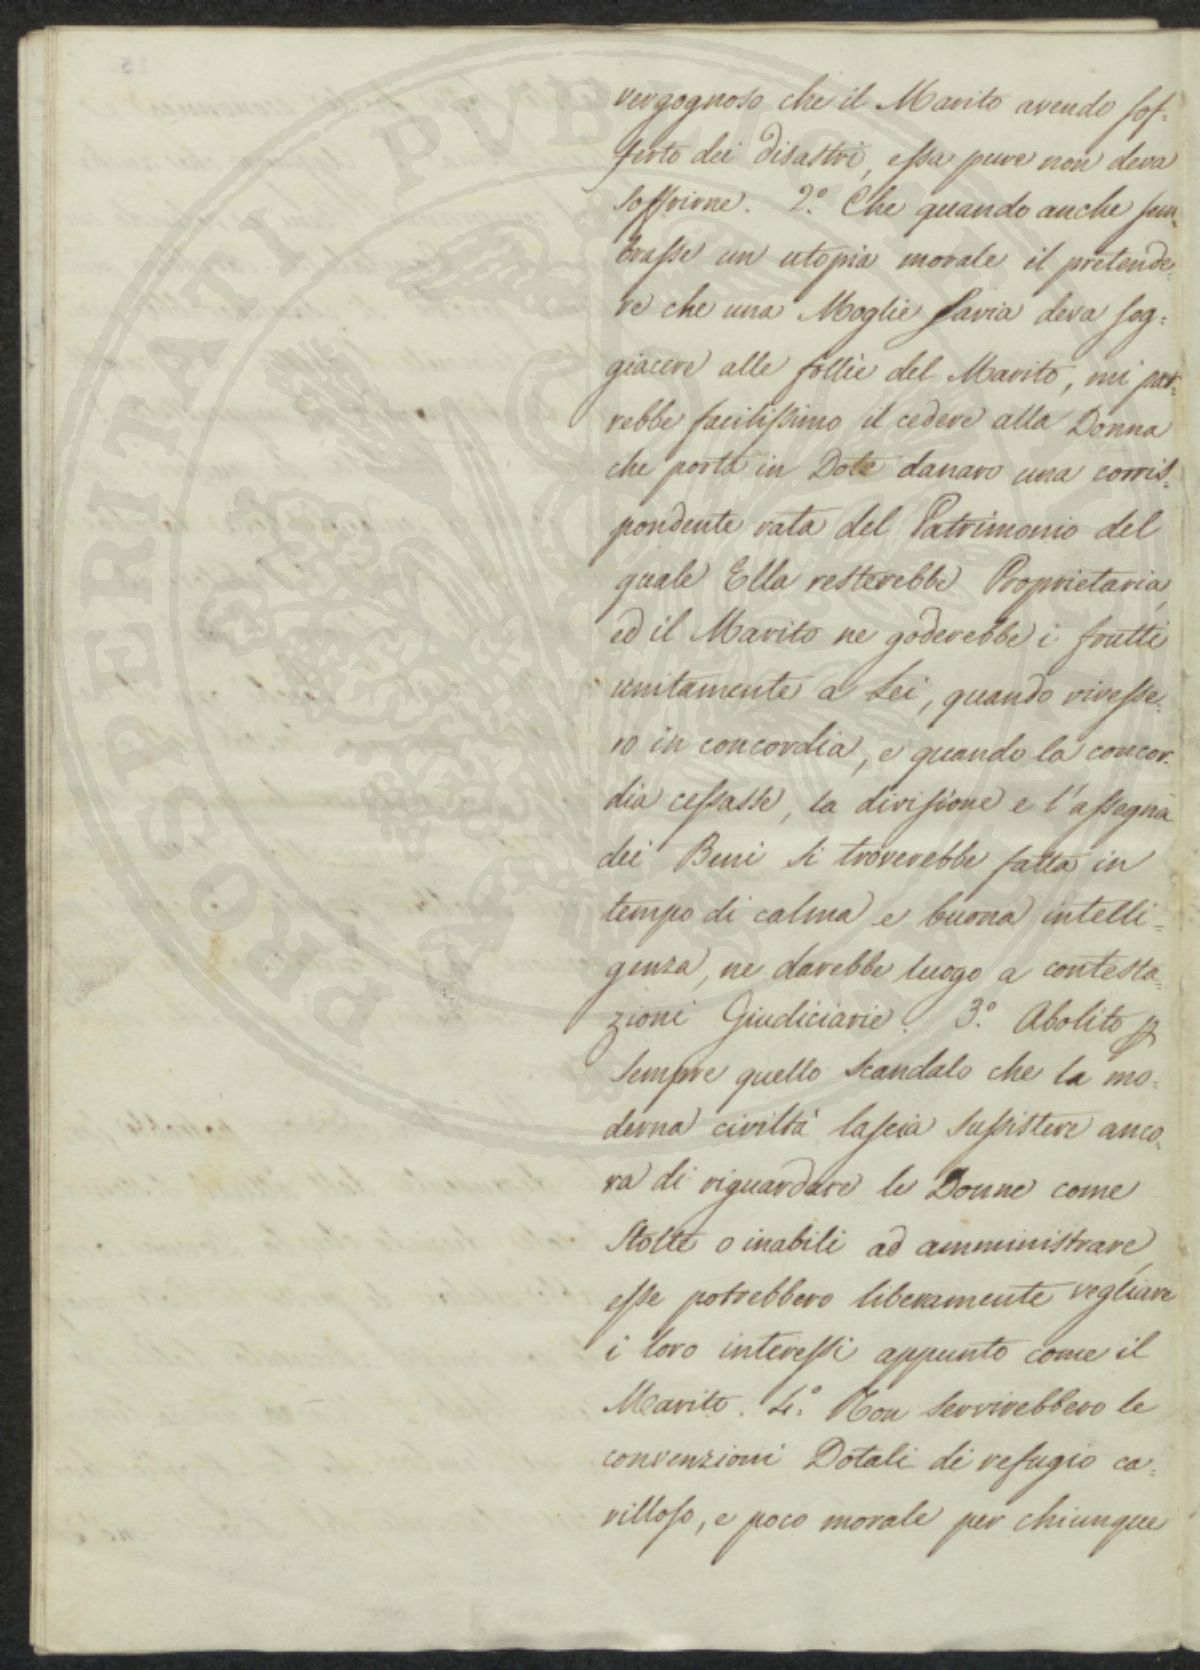 vergognoso che il Marito avendo sof=
ferto dei disastri, essa pure non deva
soffrirne. 2.° Che quando anche sem=
brasse un utopia morale il pretende=
re che una Moglie savia deva sog=
giacere alle follie del Marito, mi par=
rebbe facilissimo il cedere alla Donna
che porta in Dote danaro una corris=
pondente rata del Patrimonio del
quale Ella resterebbe Proprietaria,
ed il Marito ne goderebbe i frutti
unitamente a Lei, quando vivesse=
ro in concordia, e quando la concor=
dia cessasse, la divisione e l'assegna
dei Beni si troverebbe fatta in
tempo di calma e buona intelli=
genza, ne darebbe luogo a contesta=
zioni Giudiciarie. 3.° Abolito p
sempre quello scandalo che la mo=
derna civiltà lascia sussistere anco=
ra di riguardare le Donne come
stolte o inabili ad amministrare,
esse potrebbero liberamente vegliare
i loro interessi appunto come il
Marito. 4.° Non servirebbero le
convenzioni Dotali di refugio ca=
villoso, e poco morale per chiunque
PROSPERITATI PVBLICAE